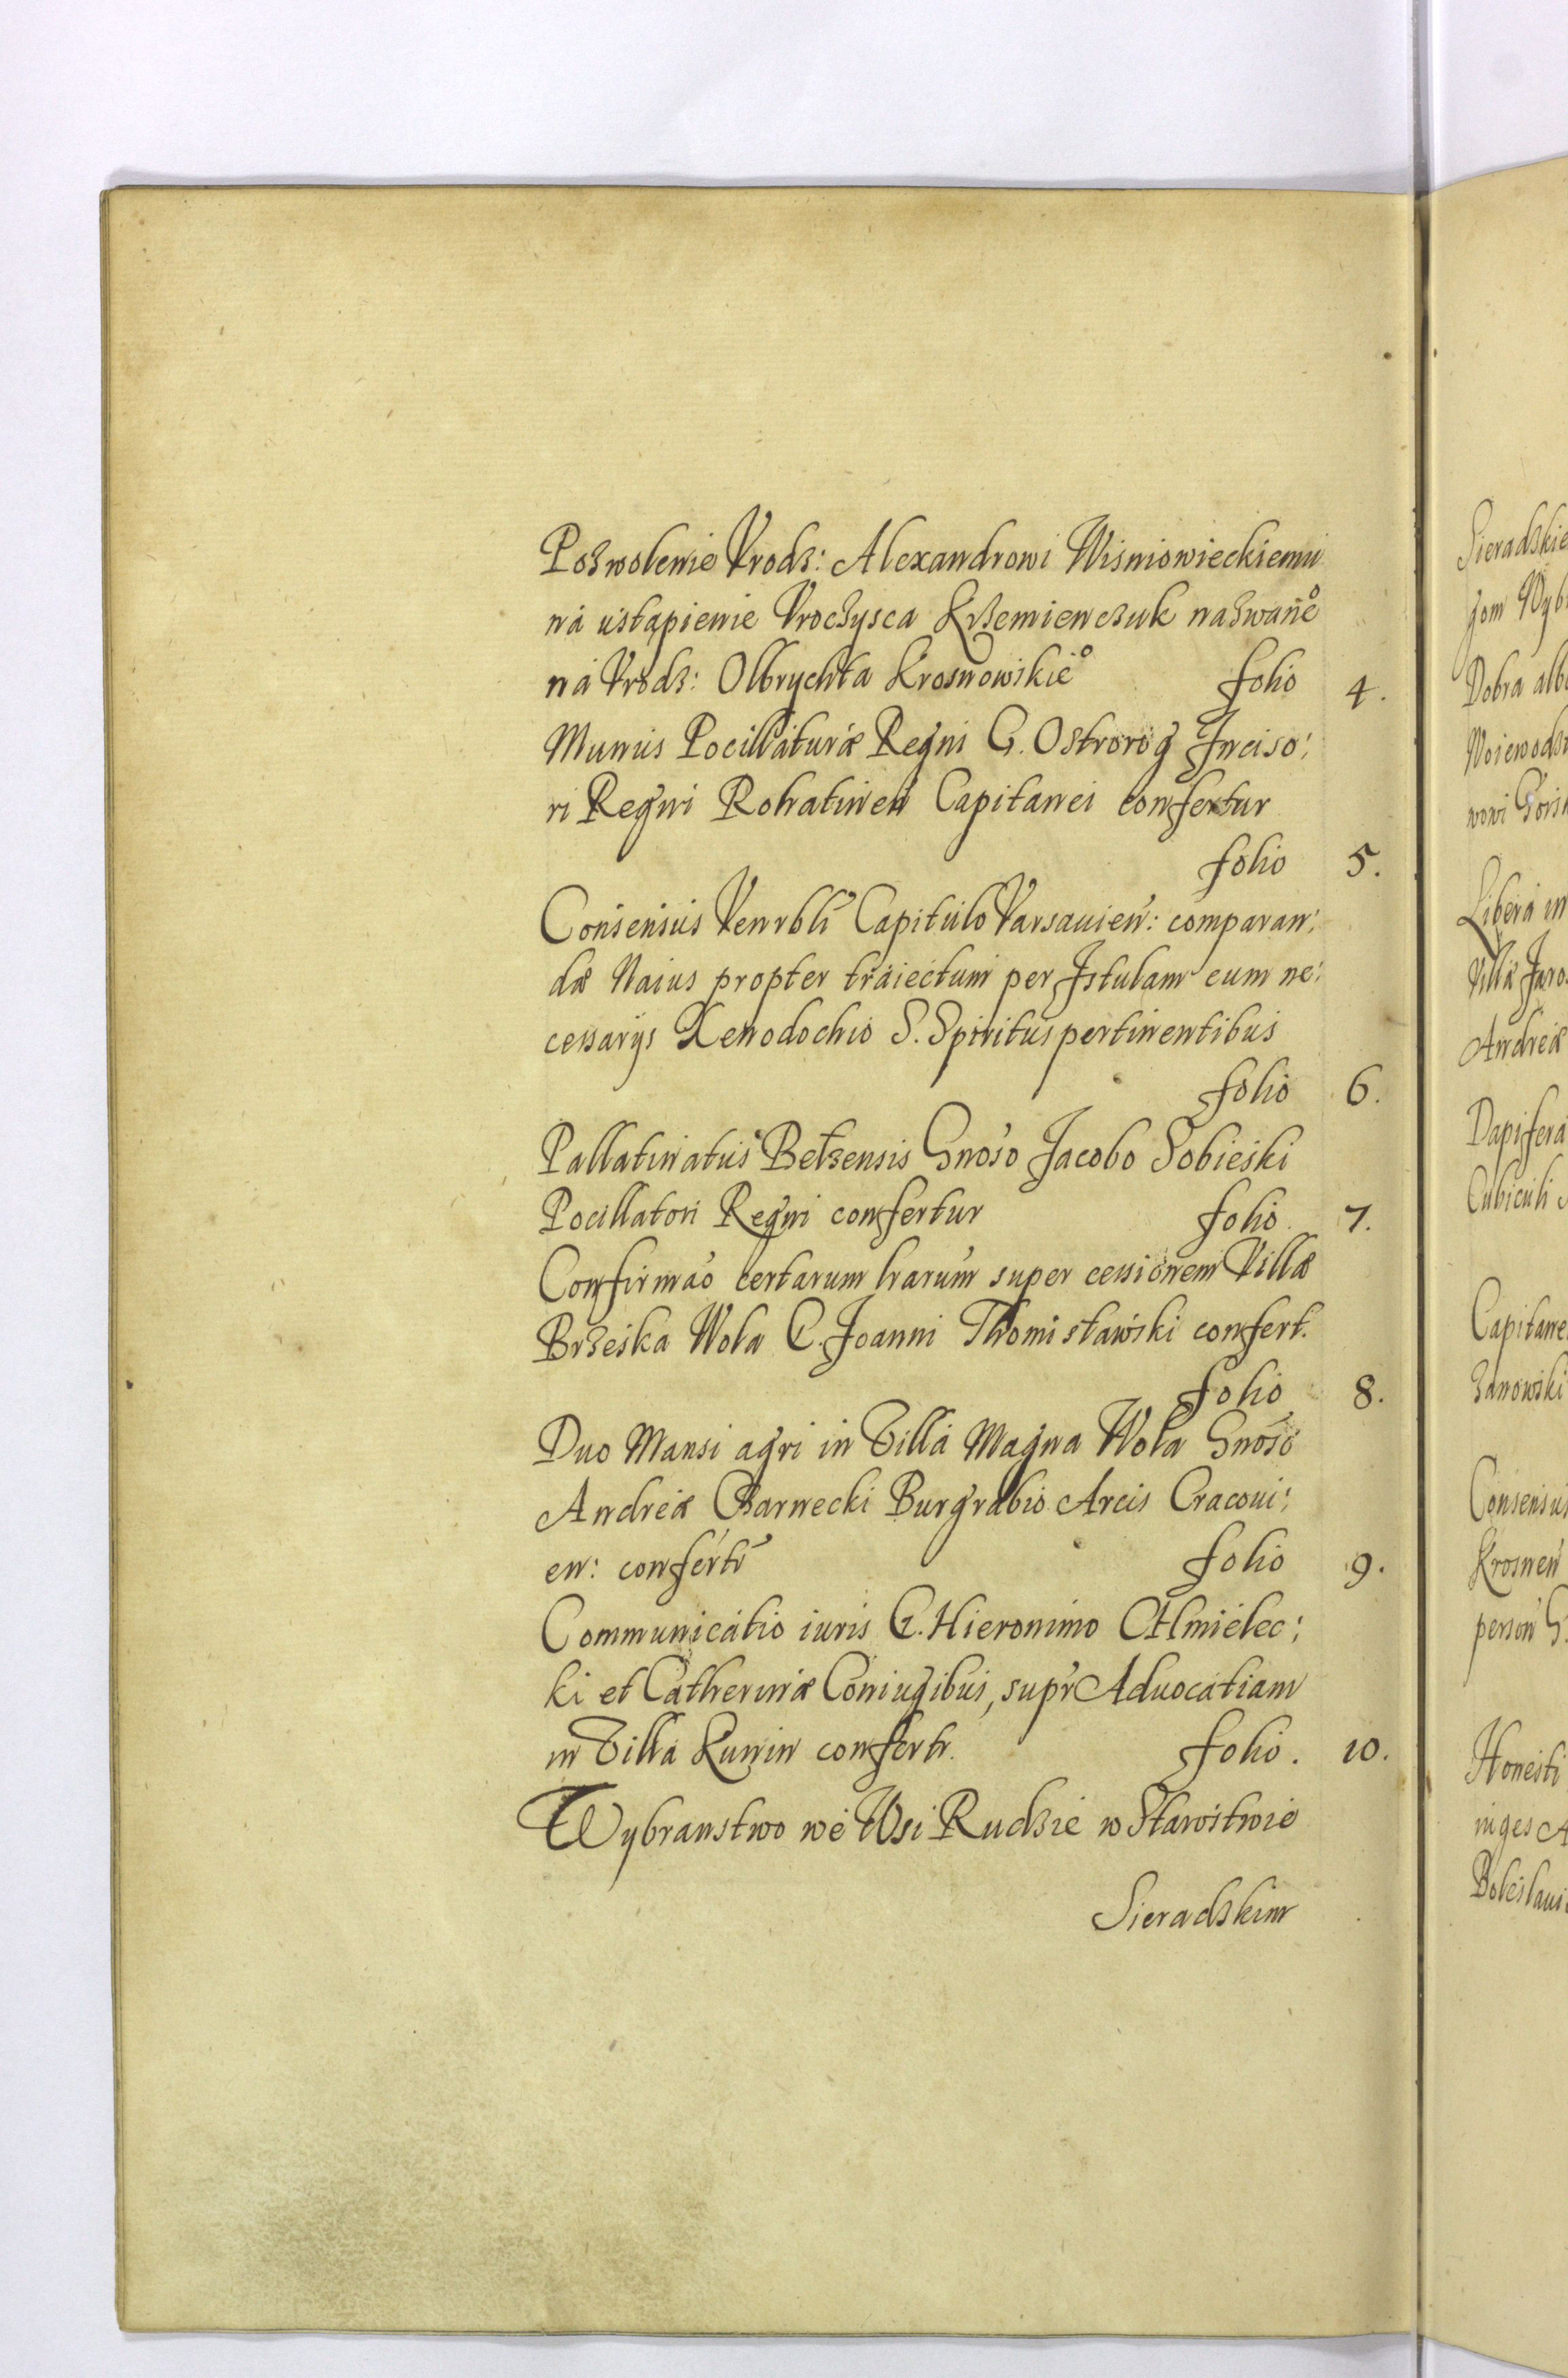 Pozwolenie Vrodz: Alexandrowi Wisniowieckiemu
ná ustąpienie Vroczysca Krzemienczuk nazwane°
ná Vrodz: Olbrychta Krosnowskie° folio 4.
Munus Pocillaturæ Regni G. Ostrorog Inciso:
ri Regni Rohatinen Capitanei confertur
folio 5.
Consensus Venrbli Capitulo Varsauien: comparan:
dæ Nauis propter traiectum per Istulam cum ne:
cessarijs Xenodochio S. Spiritus pertinentibus
folio 6.
Pallatinatus Betzensis Gnoso Jacobo Sobieski
Pocillatori Regni confertur folio 7.
Confirmao certarum lrarum super cessionem Villæ
Brzeska Wola G. Joanni Thomisławski confert.
folio 8.
Duo Mansi agri in Villa Magna Wola Gnoso
Andreæ Czarnecki Burgrabio Arcis Cracoui:
en: confertr folio 9.
Communicatio iuris G. Hieronimo Chmielec:
ki et Catherinæ Coniugibus, supr Aduocatiam
in Villa Kunin confertr. folio. 10.
Wybranstwo wé Wsi Rudzie w Starostwie
Sieradzkim
Sieradzkie
Dobra
Libera
Andreæ
Cubiculi
Consensus
Krosnen
Honesti